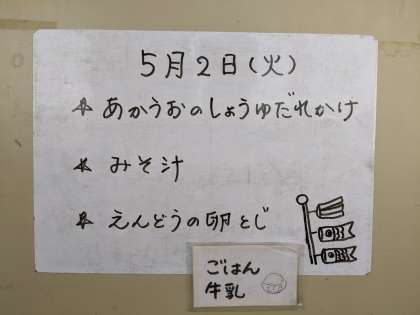 5月2日(火)
☆ あかうおのしょうゆだれかけ
☆ みそ汁
☆ えんどうの卵とじ
ごはん
牛乳